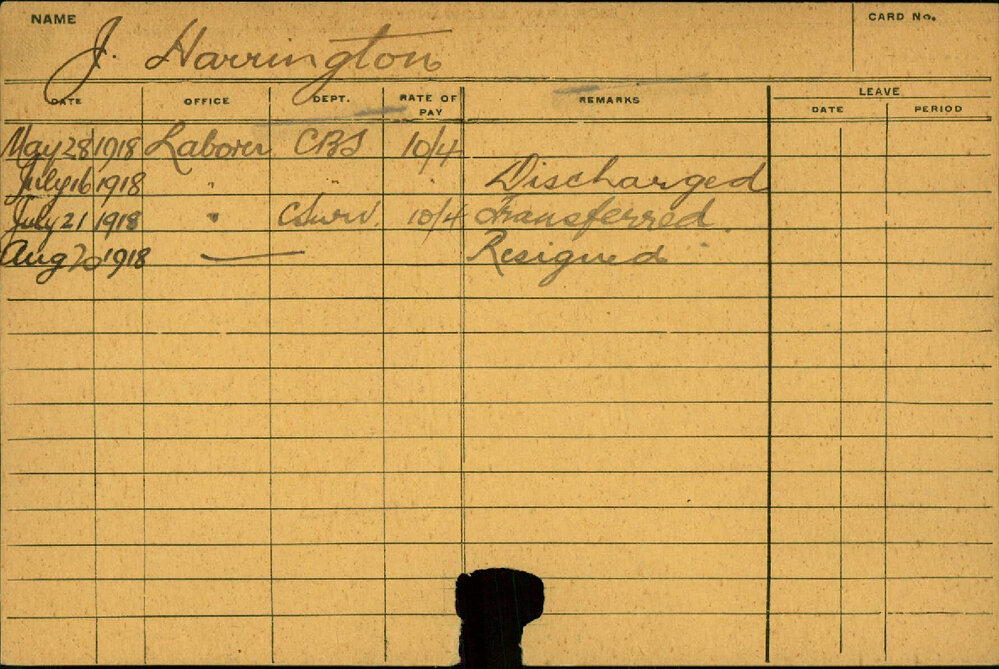 NAME J. Harrington CARD No.
DATE OFFICE DEPT. RATE OF PAY REMARKS LEAVE
DATE PERIOD
May 28 1918 Laborer CBS 10/4
July 16 1918 " " Discharged
July 21 1918 " CSurv. 10/4 Transferred.
Aug 20 1918 — Resigned